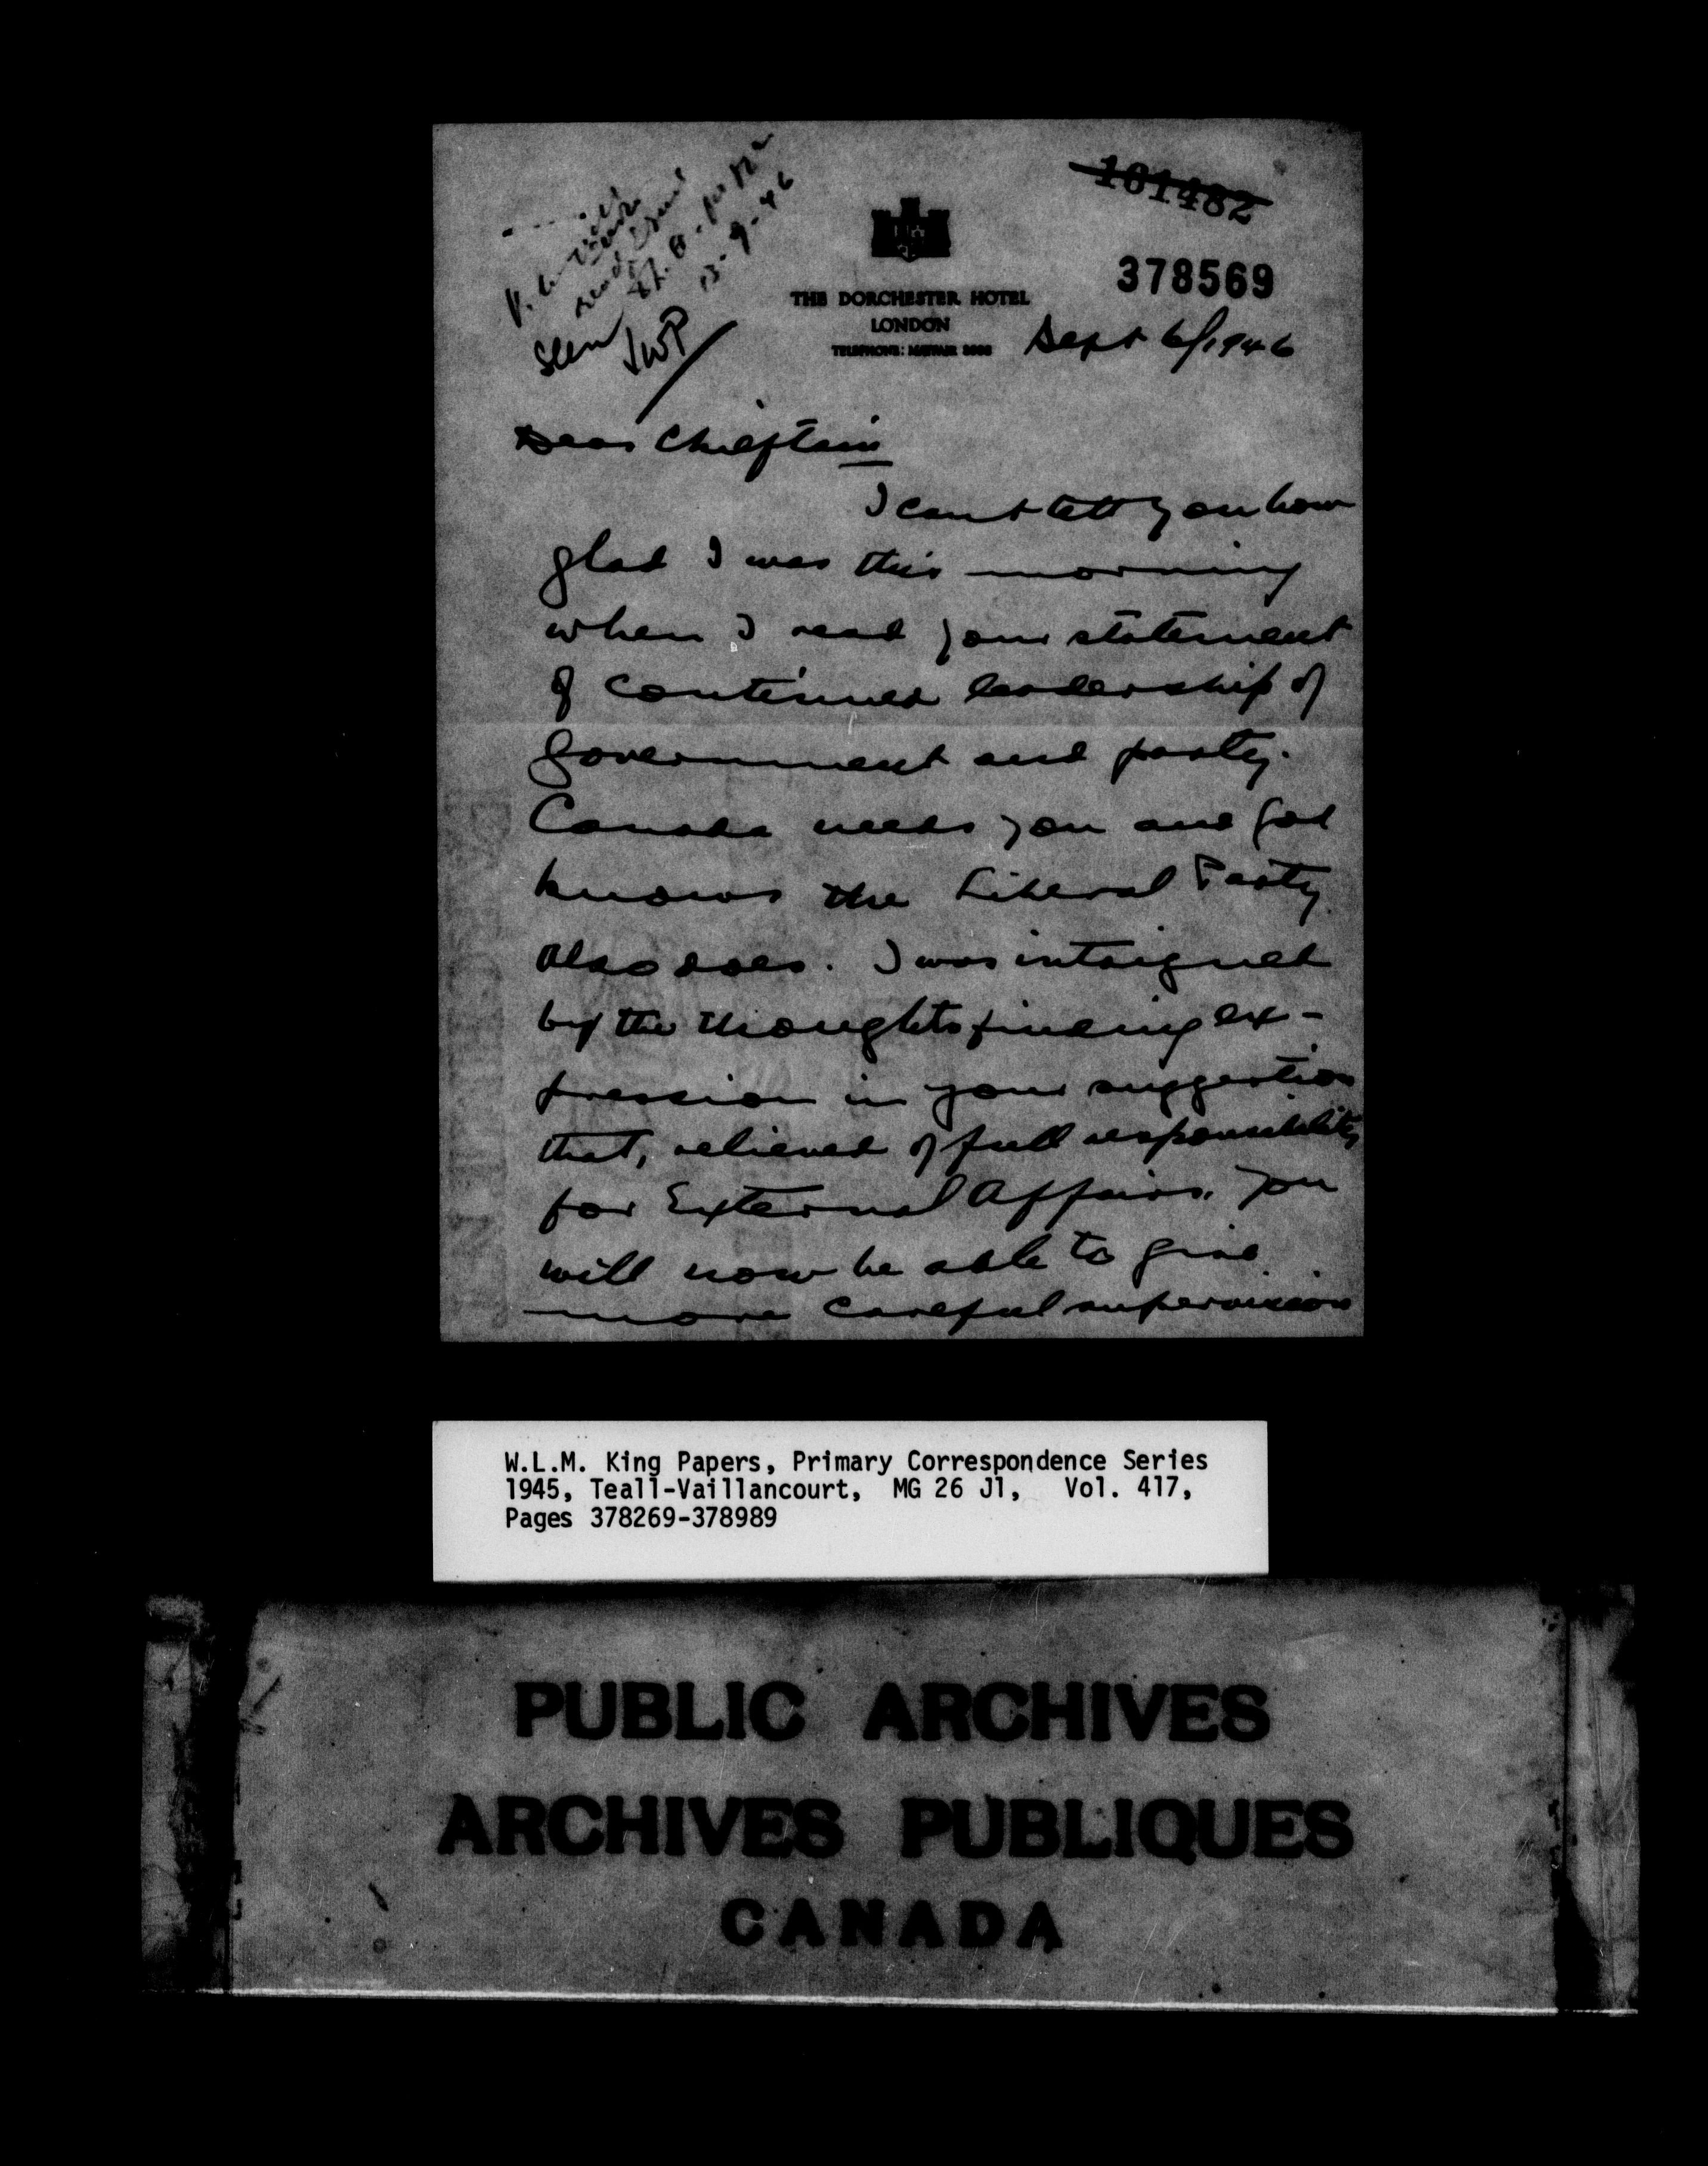 101482
378569
THE DORCHESTER HOTEL
LONDON
TELEPHONE: MAYFAIR 8888
Sept 6/1946
13-9-46
seen JWP
Dear Chieftain
I cant tell you how
glad I was this morning
when I read your statement
of continued leadership of
Government and party.
Canada needs you and God
knows the Liberal Party
also does. I was intrigued
by the thoughts finding ex-
pression in your suggestion
that, relieved of full responsibility
for External Affairs, you
will now be able to give
more careful supervision
W.L.M. King Papers, Primary Correspondence Series
1945, Teall-Vaillancourt, MG 26 J1, Vol. 417,
Pages 378269-378989
PUBLIC ARCHIVES
ARCHIVES PUBLIQUES
CANADA